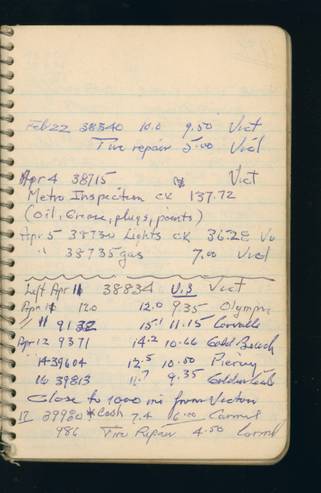 Feb 22 38340 10.0 9.50 Vict
Tire repair 5.00 Vict
Apr 4 38715 Vict
Metro Inspection ck 137.72
(Oil, Grease, plugs, points)
Apr 5 38730 Lights ck 36.28 Vic
" 38735 gas 7.00 Vict
Left Apr 11 38834 U.S Vict
Apr 11 120 12.0 9.35 Olympia
" 11 9132 15.1 11.15 Corvallis
Apr 12 9371 14.2 10.66 Gold Beach
14 39604 12.5 10.50 Piercy
16 39813 11.7 9.35
Close to 1000 mi from Victoria
17 39930 * Cash 7.4 6.00 Carmel
986 Tire Repair 4.50 Carmel